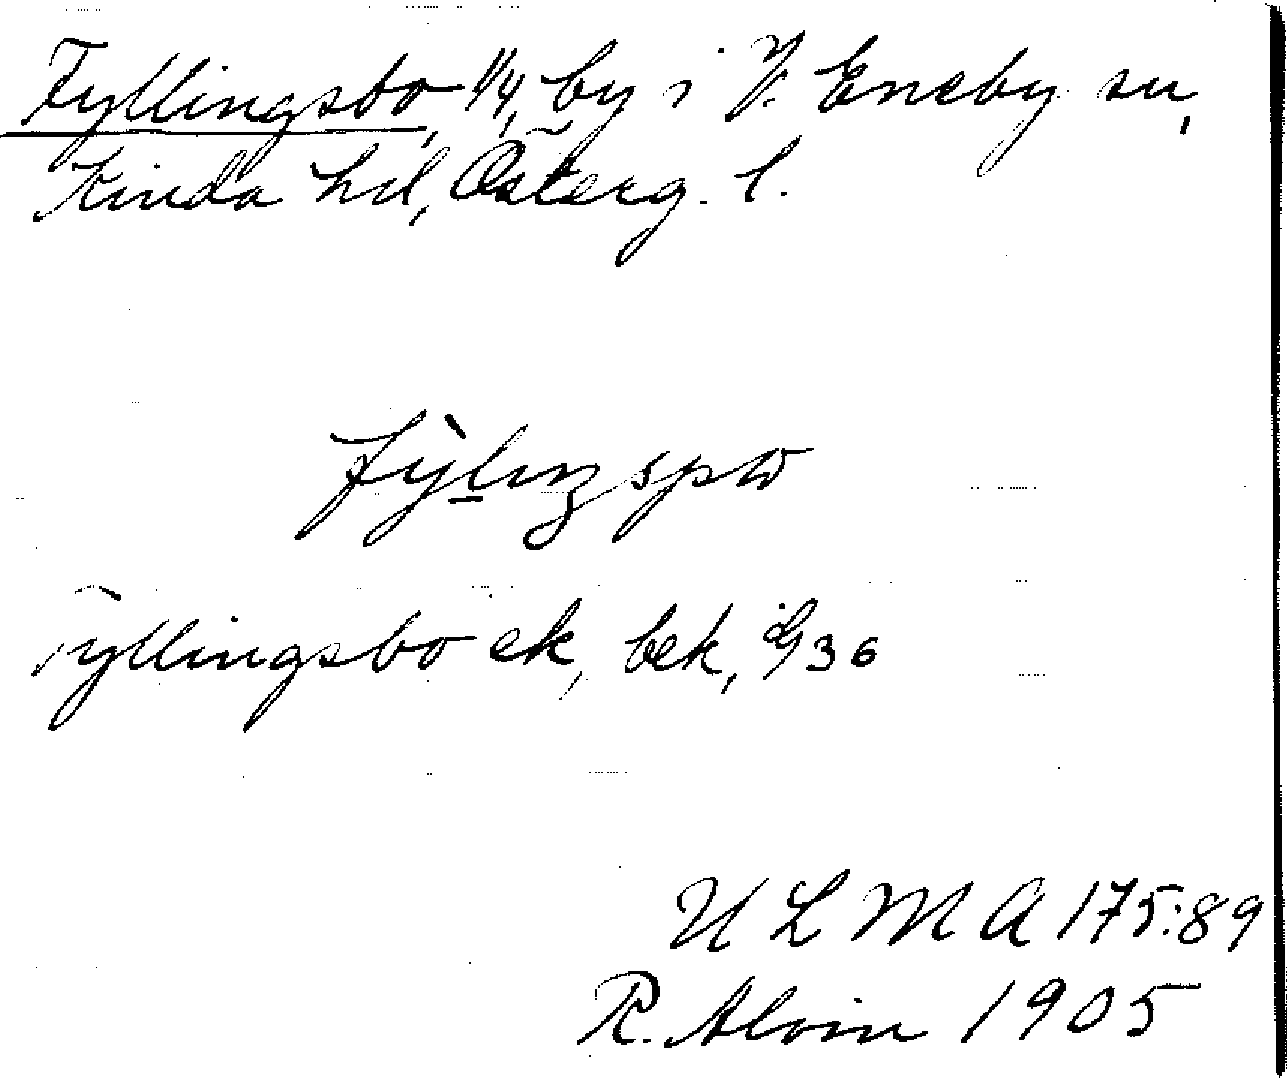 Fyllingsbo, 1/4, by i V. Eneby sn,
Kinda hd, Österg. l.
fỳlıŋspω
Fyllingsbo ek, bek, 36
ULMA 175:89
R. Alvin 1905